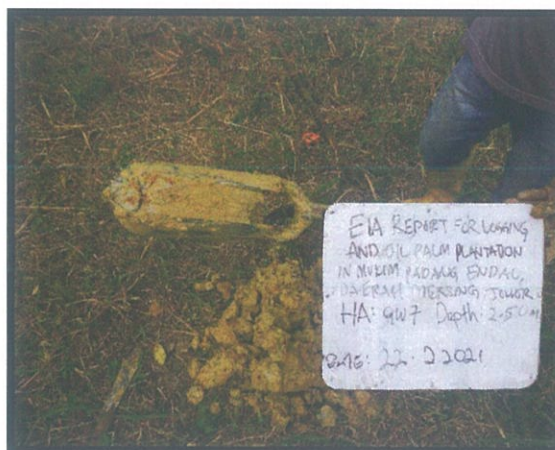 EIA REPORT FOR LOGGING
AND OIL PALM PLANTATION
IN MUKIM PADANG ENDAU,
DAERAH MERSING JOHOR
HA: GW7 Depth: 2.50m
DATE: 22.2 2021